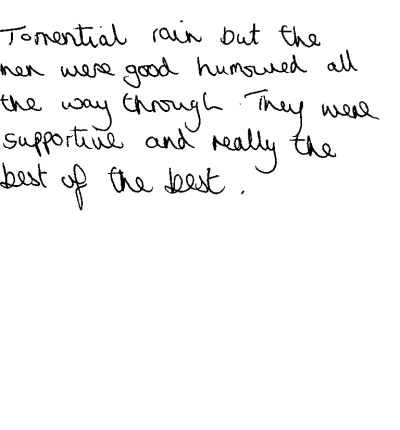 Torrential rain but the
men were good humoured all
the way through. They were
supportive and really the
best of the best.